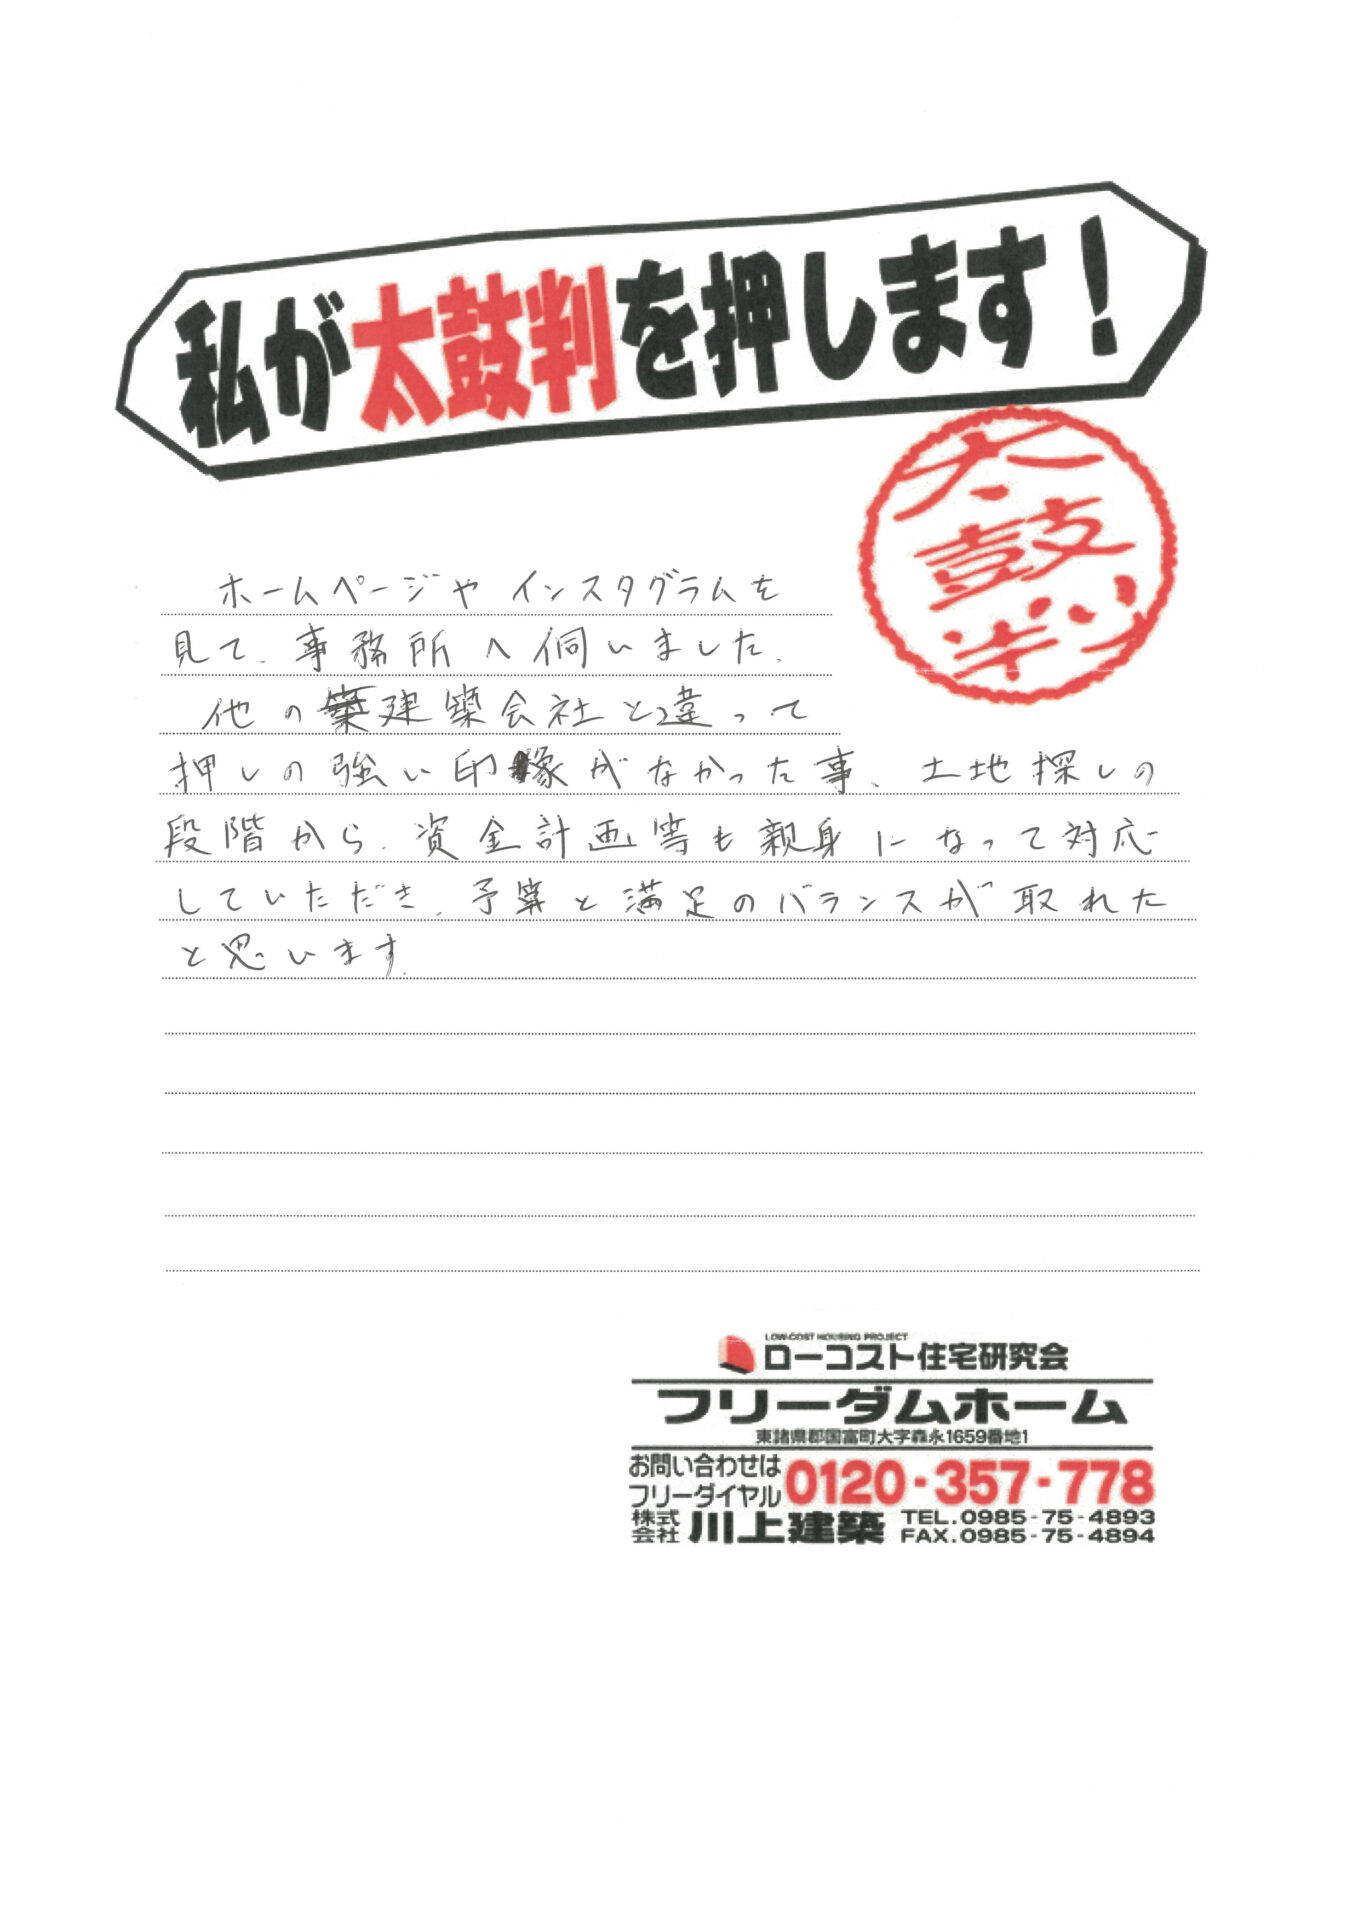 私が太鼓判を押します！
太鼓判
ホームページやインスタグラムを
見て、事務所へ伺いました。
他の建築会社と違って
押しの強い印象がなかった事、土地探しの
段階から、資金計画等も親身になって対応
していただき、予算と満足のバランスが取れた
と思います。
LOW-COST HOUSING PROJECT
ローコスト住宅研究会
フリーダムホーム
東諸県郡国富町大字森永1659番地1
お問い合わせは
フリーダイヤル 0120-357-778
株式会社 川上建築 TEL.0985-75-4893
FAX.0985-75-4894